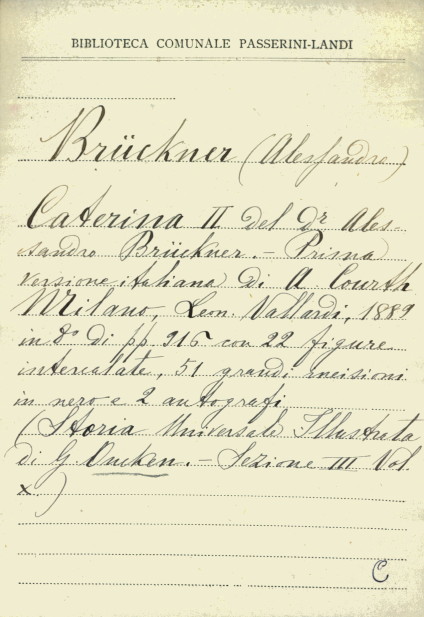 BIBLIOTECA COMUNALE PASSERINI-LANDI
Brückner (Alessandro)
Caterina II del Dr Ales-
sandro Brückner. - Prima
versione italiana di A. Courth
Milano, Leon. Vallardi, 1889
in 8º di pp. 916 con 22 figure
intercalate, 51 grandi incisioni
in nero e 2 autografi
(Storia Universale Illustrata
di G Oncken. - Sezione III Vol.
x.)
C